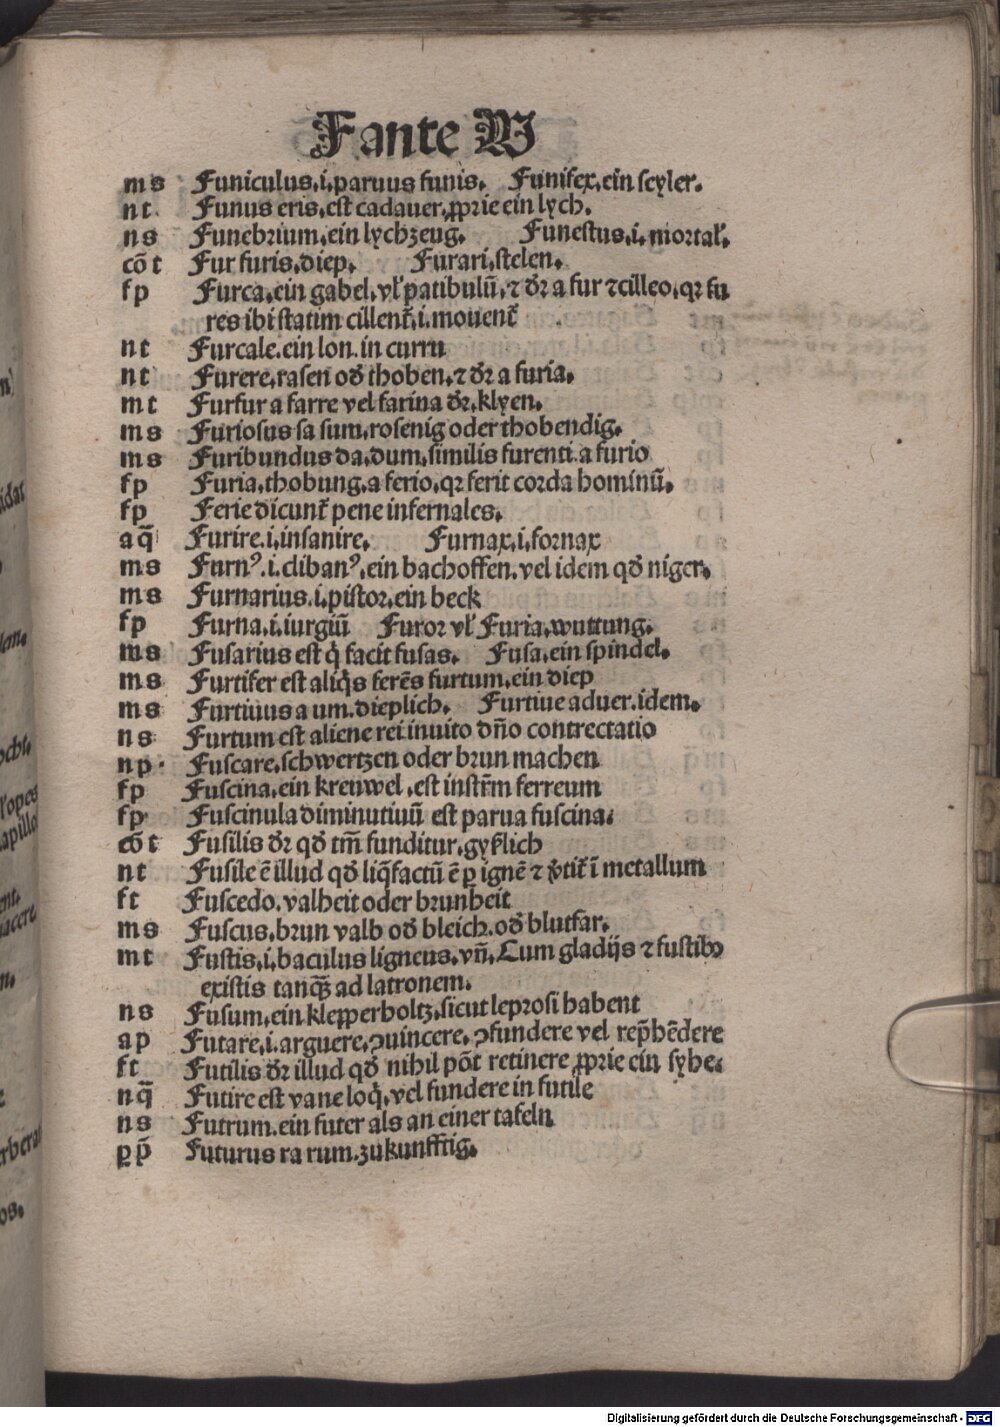 Fante W
ms Funiculus.i.paruus funis. Funifex.ein seyler.
nt Funus eris.est cadauer.ꝓprie ein lych.
ns Funebrium.ein lychzeug. Funestus.i.mortał.
cōt Fur furis.diep. Furari.stelen.
fp Furca.ein gabel.vł patibulū.⁊ dr̄ a fur ⁊cilleo.qꝛ fu
res ibi statim cillent᷑.i.mouent᷑
nt Furcale.ein lon.in curru
nt Furere.rasen od̓ thoben.⁊ dr̄ a furia.
mt Furfur a farre vel farina dr̄.klyen.
ms Furiosus sa sum.rosenig oder thobendig.
ms Furibundus da.dum.similis furenti.a furio
fp Furia.thobung.a ferio.qꝛ ferit corda hominū.
fp Ferie dicunt᷑ pene infernales.
aq̄ Furire.i.insanire. Furnax.i.fornax
ms Furnꝰ.i.clibanꝰ.ein bachoffen.vel idem qd̓ niger.
ms Furnarius.i.pistor.ein beck
fp Furna.i.iurgiū Furor vł Furia.wuttung.
ms Fusarius est q̇ facit fusas. Fusa.ein spindel.
ms Furtifer est aliq̇s ferēs furtum.ein diep
ms Furtiuus a um.dieplich. Furtiue aduer.idem.
ns Furtum est aliene rei inuito dn̄o contrectatio
np Fuscare.schwertzen oder brun machen
fp Fuscina.ein krenwel.est instr̄m ferreum
fp Fuscinula diminutiuū est parua fuscina.
cōt Fusilis dr̄ qd̓ tm̄ funditur.gyßlich
nt Fusile ē illud qd̓ liq̄factū ē ꝑ ignē ⁊ ꝟtit᷑ ī metallum
ft Fuscedo.valheit oder brunheit
ms Fuscus.brun valb od̓ bleich.od̓ blutfar.
mt Fustis.i.baculus ligneus.vn̄.Cum gladijs ⁊ fustibꝰ
existis tanqꝫ ad latronem.
ns Fusum.ein klepperboltz.sicut leprosi habent
ap Futare.i.arguere.ꝯuincere.ꝯfundere vel rep̄hēdere
ft Futilis dr̄ illud qd̓ nihil pōt retinere ꝓprie ein sybe.
nq̄ Futire est vane loq̇.vel fundere in futile
ns Futrum.ein futer als an einer tafeln
ꝑp̄ Futurus ra rum.zukunfftig.
Digitalisierung gefördert durch die Deutsche Forschungsgemeinschaft - DFG